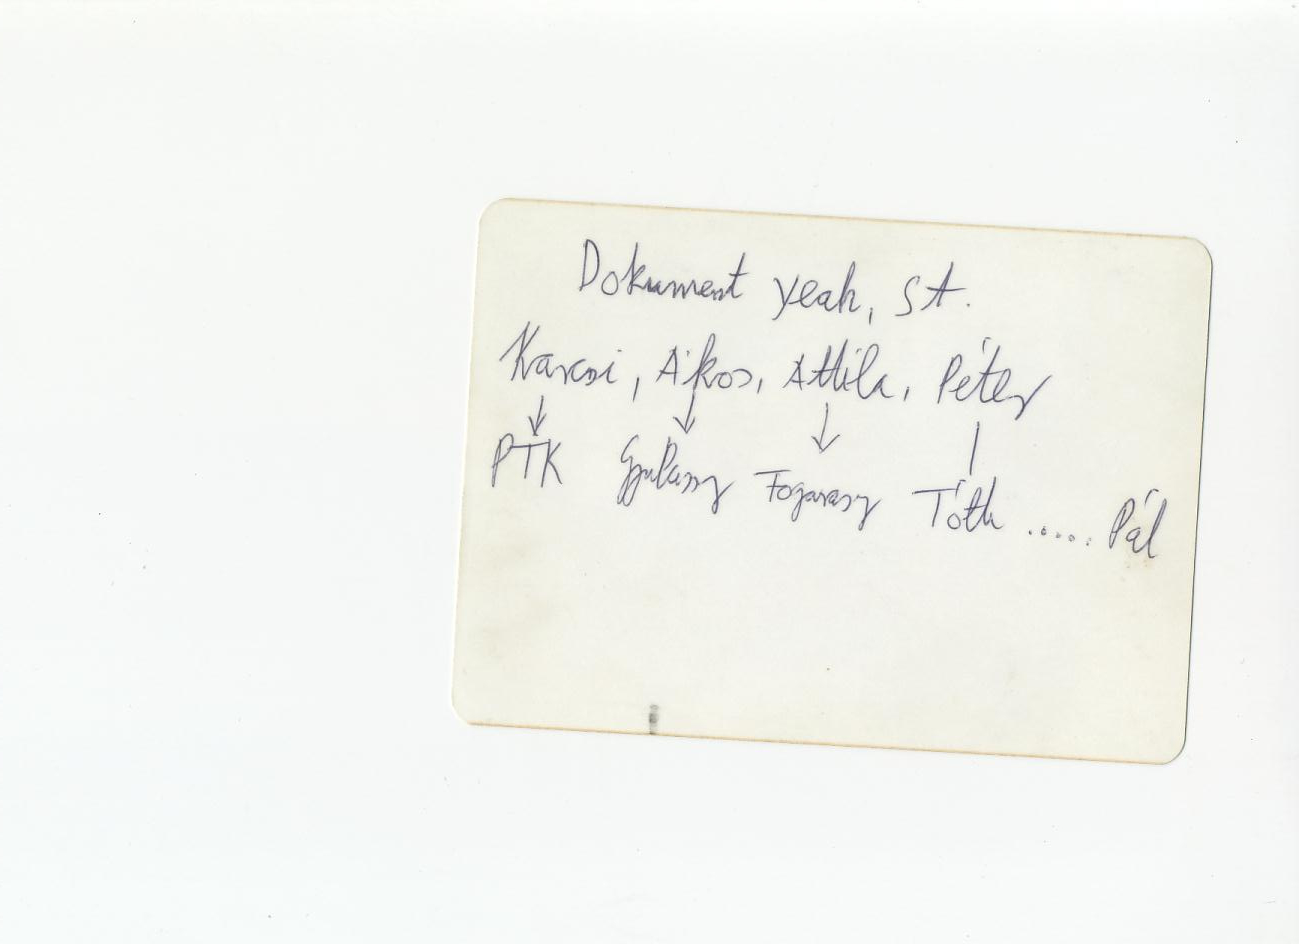 Dokument yeah, St.
Karcsi, Ákos, Attila, Péter
PTK Gyulassy Fogarasy Tóth ..... Pál